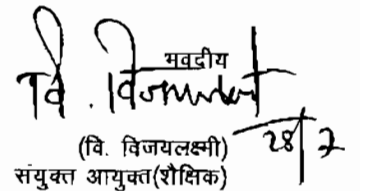 भवदीय
वि. विजयलक्ष्मी
28/2
(वि. विजयलक्ष्मी)
संयुक्त आयुक्त(शैक्षिक)